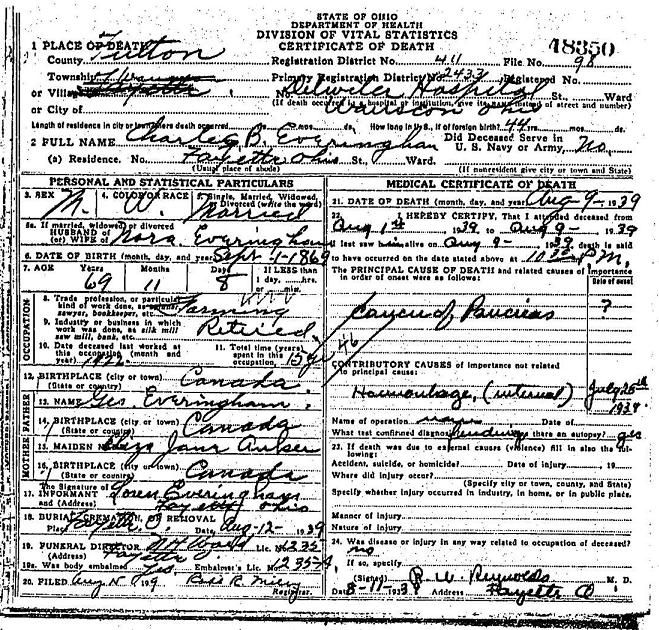 STATE OF OHIO
DEPARTMENT OF HEALTH
DIVISION OF VITAL STATISTICS
CERTIFICATE OF DEATH
18350
1 PLACE OF DEATH
County Fulton Registration District No. 411 File No. 98
Township Primary Registration District No. 2433 Registered No.
or Village No. Detwiler Hospital St., Ward
(If death occurred in a hospital or institution, give its name instead of street and number)
or City of Wauseon Ohio
Length of residence in city or town where death occurred mos. ds. How long in U.S., if of foreign birth? 44 yrs. mos. ds.
2 FULL NAME Charles B Everingham Did Deceased Serve in U. S. Navy or Army, No.
(a) Residence. No. Fayette Ohio St., Ward.
(Usual place of abode) (If nonresident give city or town and State)
PERSONAL AND STATISTICAL PARTICULARS
3. SEX M. 4. COLOR OR RACE W. 5. Single, Married, Widowed, or Divorced (write the word) Married
5a. If married, widowed or divorced
HUSBAND of
(or) WIFE of Nora Everingham
6. DATE OF BIRTH (month, day, and year) Sept-1-1869
7. AGE Years Months Days If LESS than
69 11 8 1 day, ......hrs.
or ......min.
OCCUPATION
8. Trade, profession, or particular
kind of work done, as spinner,
sawyer, bookkeeper, etc. Farming
9. Industry or business in which
work was done, as silk mill
saw mill, bank, etc. Retired
10. Date deceased last worked at
this occupation (month and
year) 11. Total time (years)
spent in this
occupation. 15 yr
46
12. BIRTHPLACE (city or town) Canada
(State or country)
FATHER
13. NAME Geo Everingham
14. BIRTHPLACE (city or town) Canada
(State or country)
MOTHER
15. MAIDEN NAME Eliza Jane
16. BIRTHPLACE (city or town) Canada
(State or country)
The Signature of
17. INFORMANT Loren Everingham
and (Address) Fayette Ohio
18. BURIAL, CREMATION, OR REMOVAL
Place Fayette O Date, Aug-12- 1939
19. FUNERAL DIRECTOR Lic. No.
(Address) Fayette O
19a. Was body embalmed Yes. Embalmer's Lic. No. 235-A
20. FILED Aug 193 9 R.
Registrar.
MEDICAL CERTIFICATE OF DEATH
21. DATE OF DEATH (month, day, and year) Aug-9- 1939
22. I HEREBY CERTIFY, That I attended deceased from
Aug 1st 1939, to Aug 9- 1939
I last saw him alive on Aug 9- 1939, death is said
to have occurred on the date stated above at 10 P.M.
THE PRINCIPAL CAUSE OF DEATH and related causes of importance
in order of onset were as follows: Date of onset
Cancer of Pancreas ?
CONTRIBUTORY CAUSES of importance not related
to principal cause:
Haemorrhage, (internal) July 25th
Name of operation none Date of
What test confirmed diagnosis? findings Was there an autopsy? yes
23. If death was due to external causes (violence) fill in also the following:
Accident, suicide, or homicide? Date of injury , 19
Where did injury occur?
(Specify city or town, county, and State)
Specify whether injury occurred in industry, in home, or in public place.
Manner of injury
Nature of injury
24. Was disease or injury in any way related to occupation of deceased?
no
If so, specify
(Signed) R. W. Reynolds M. D.
Date 8-11-1939 Address Fayette O